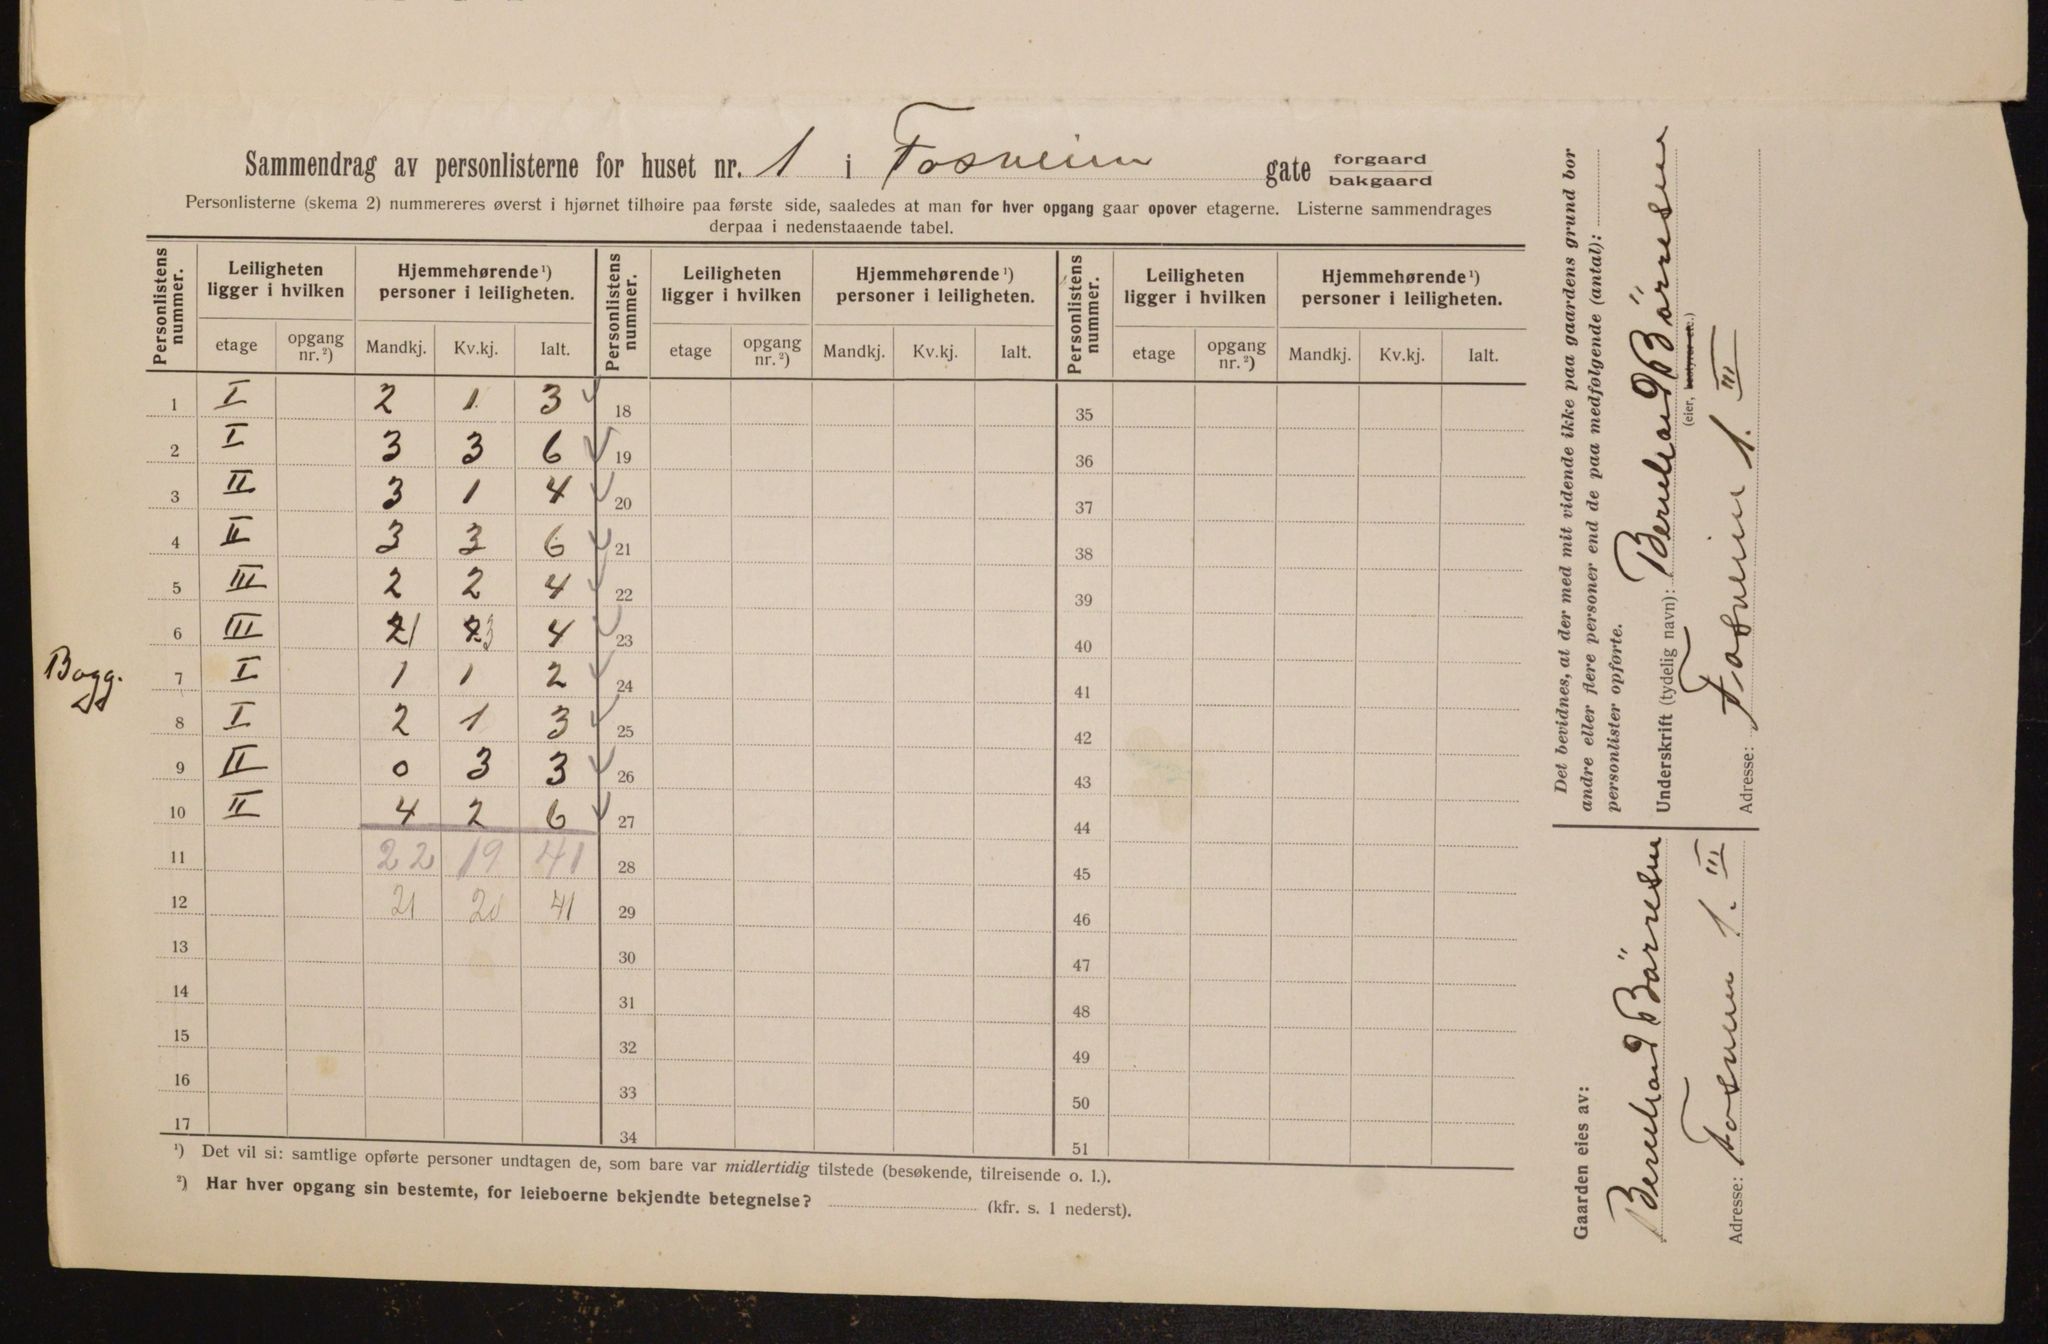 Sammendrag av personlisterne for huset nr. 1 i Fosveien gate forgaard
bakgaard
Personlisterne (skema 2) nummereres øverst i hjørnet tilhøire paa første side, saaledes at man for hver opgang gaar opover etagerne. Listerne sammendrages
derpaa i nedenstaaende tabel.
Personlistens nummer. Leiligheten ligger i hvilken Hjemmehørende ¹) personer i leiligheten. Personlistens nummer. Leiligheten ligger i hvilken Hjemmehørende ¹) personer i leiligheten. Personlistens nummer. Leiligheten ligger i hvilken Hjemmehørende ¹) personer i leiligheten.
etage opgang nr. ²) Mandkj. Kv.kj. Ialt. etage opgang nr. ²) Mandkj. Kv.kj. Ialt. etage opgang nr. ²) Mandkj. Kv.kj. Ialt.
1 I 2 1 3 18 35
2 I 3 3 6 19 36
3 II 3 1 4 20 37
4 II 3 3 6 21 38
5 III 2 2 4 22 39
6 III 2 1 2 3 4 23 40
Bagg. 7 I 1 1 2 24 41
8 I 2 1 3 25 42
9 II 0 3 3 26 43
10 II 4 2 6 27 44
11 22 19 41 28 45
12 21 20 41 29 46
13 30 47
14 31 48
15 32 49
16 33 50
17 34 51
¹) Det vil si: samtlige opførte personer undtagen de, som bare var midlertidig tilstede (besøkende, tilreisende o. l.).
²) Har hver opgang sin bestemte, for leieboerne bekjendte betegnelse? (kfr. s. 1 nederst).
Det bevidnes, at der med mit vidende ikke paa gaardens grund bor
andre eller flere personer end de paa medfølgende (antal):
personlister opførte.
Underskrift (tydelig navn): Bernhard Börresen
(eier, bestyrer etc.)
Adresse: Fosveien 1. III
Gaarden eies av:
Bernhard Börresen
Adresse: Fosveien 1. III